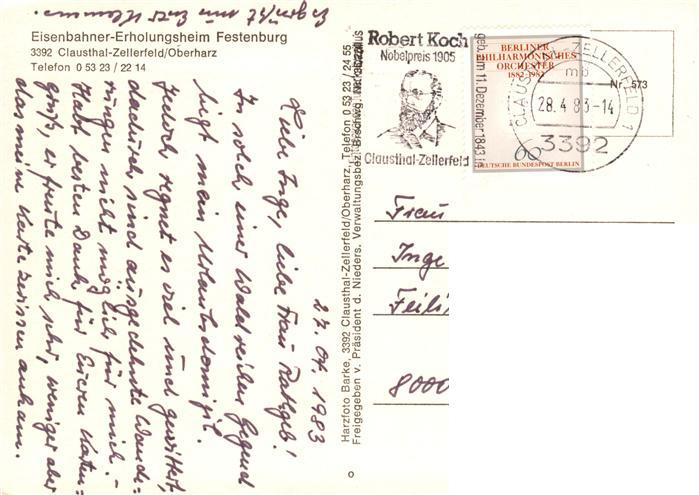 Eisenbahner-Erholungsheim Festenburg
3392 Clausthal-Zellerfeld/Oberharz
Telefon 0 53 23 / 22 14
27. 04. 1983
Liebe Inge, liebe Frau Rathgeb!
In solch einer waldreichen Gegend
liegt mein Urlaubsdomizil.
Jedoch regnet es viel und gewittert,
dadurch sind ausgedehnte Wande-
rungen nicht möglich für mich. -
Habt besten Dank für Euren Karten-
gruß, er freute mich sehr, weniger aber
das meine Karte zerrissen ankam.
nun Euer
Harzfoto Barke, 3392 Clausthal-Zellerfeld/Oberharz, Telefon 0 53 23 / 24 55
Freigegeben v. Präsident d. Nieders. Verwaltungsbez. Brschwg.
Robert Koch
Nobelpreis 1905
geb. am 11. Dezember 1843 in
Clausthal-Zellerfeld
BERLINER
PHILHARMONISCHES
ORCHESTER
1882-1982
60
DEUTSCHE BUNDESPOST BERLIN
CLAUSTHAL-ZELLERFELD 1
mb
28.4.83-14
3392
Nr. 573
Frau
Inge
8000